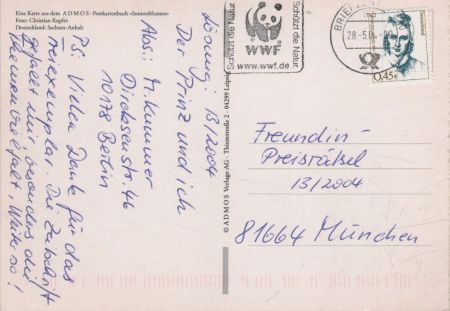 Eine Karte aus dem ADMOS-Postkartenbuch «Sonnenblumen»
Foto: Christian Kupfer
Deutschland: Sachsen-Anhalt
Lösung: 13/2004
Der Prinz und ich
Abs: M. Kummer
Dircksenstr. 46
10178 Berlin
PS: Vielen Dank für das
Freiexemplar. Die Zeitschrift
gefällt mir besonders die
Themenvielfalt, Weiter so!
© ADMOS Verlags-AG · Thiemstraße 2 · 04299 Leipzig
Schützt die Natur.
WWF
www.wwf.de
Schützt die Natur.
BRIEFZE
28-5.04
0,45€
Freundin-
Preisrätsel
13/2004
81664 München